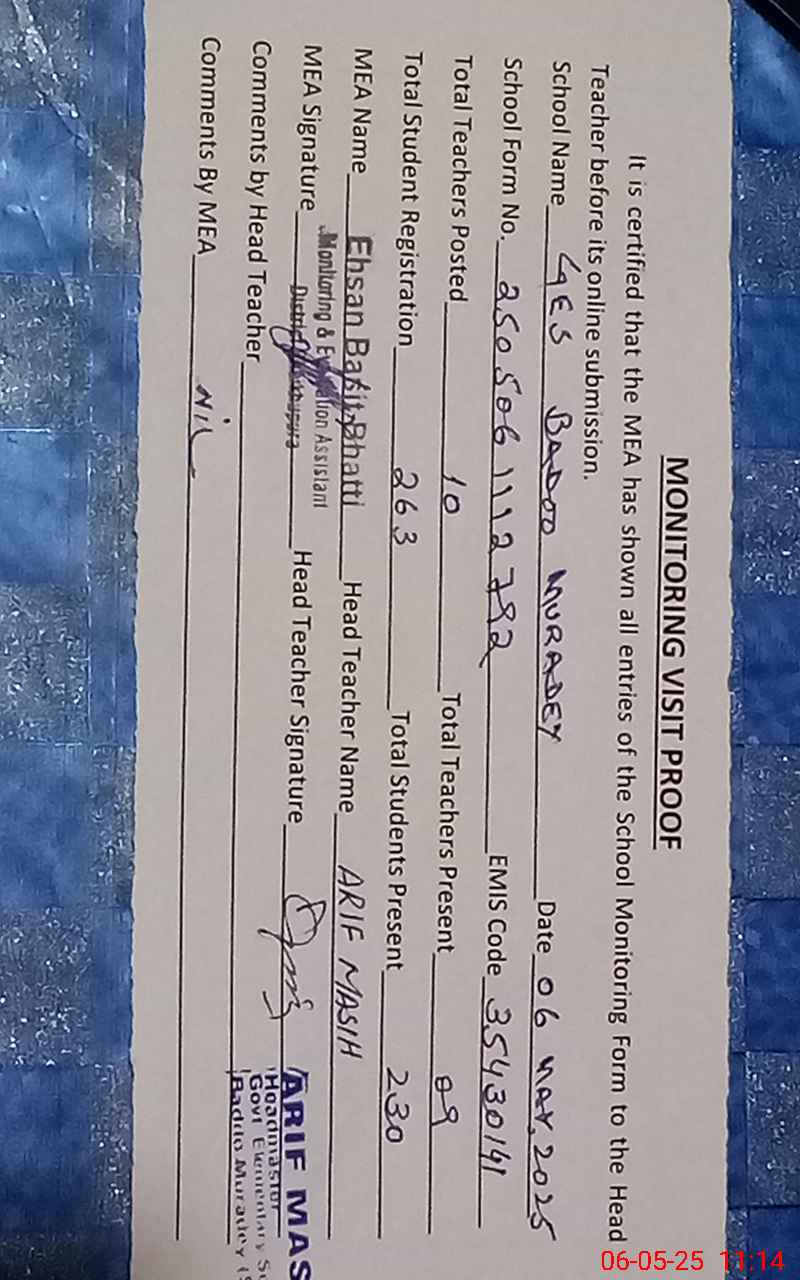 MONITORING VISIT PROOF
It is certified that the MEA has shown all entries of the School Monitoring Form to the Head
Teacher before its online submission.
School Name GES BADOO MURADEY Date 06 MAY, 2025
School Form No. 2505061112792 EMIS Code 35430141
Total Teachers Posted 10 Total Teachers Present 09
Total Student Registration 263 Total Students Present 230
MEA Name Ehsan Bhatti Head Teacher Name ARIF MASIH
Monitoring & Assistant
MEA Signature District Head Teacher Signature
ARIF MAS
Headmaster
Comments by Head Teacher Govt Elementary
Baddo Muradey
Comments By MEA NIL
06-05-25 11:14